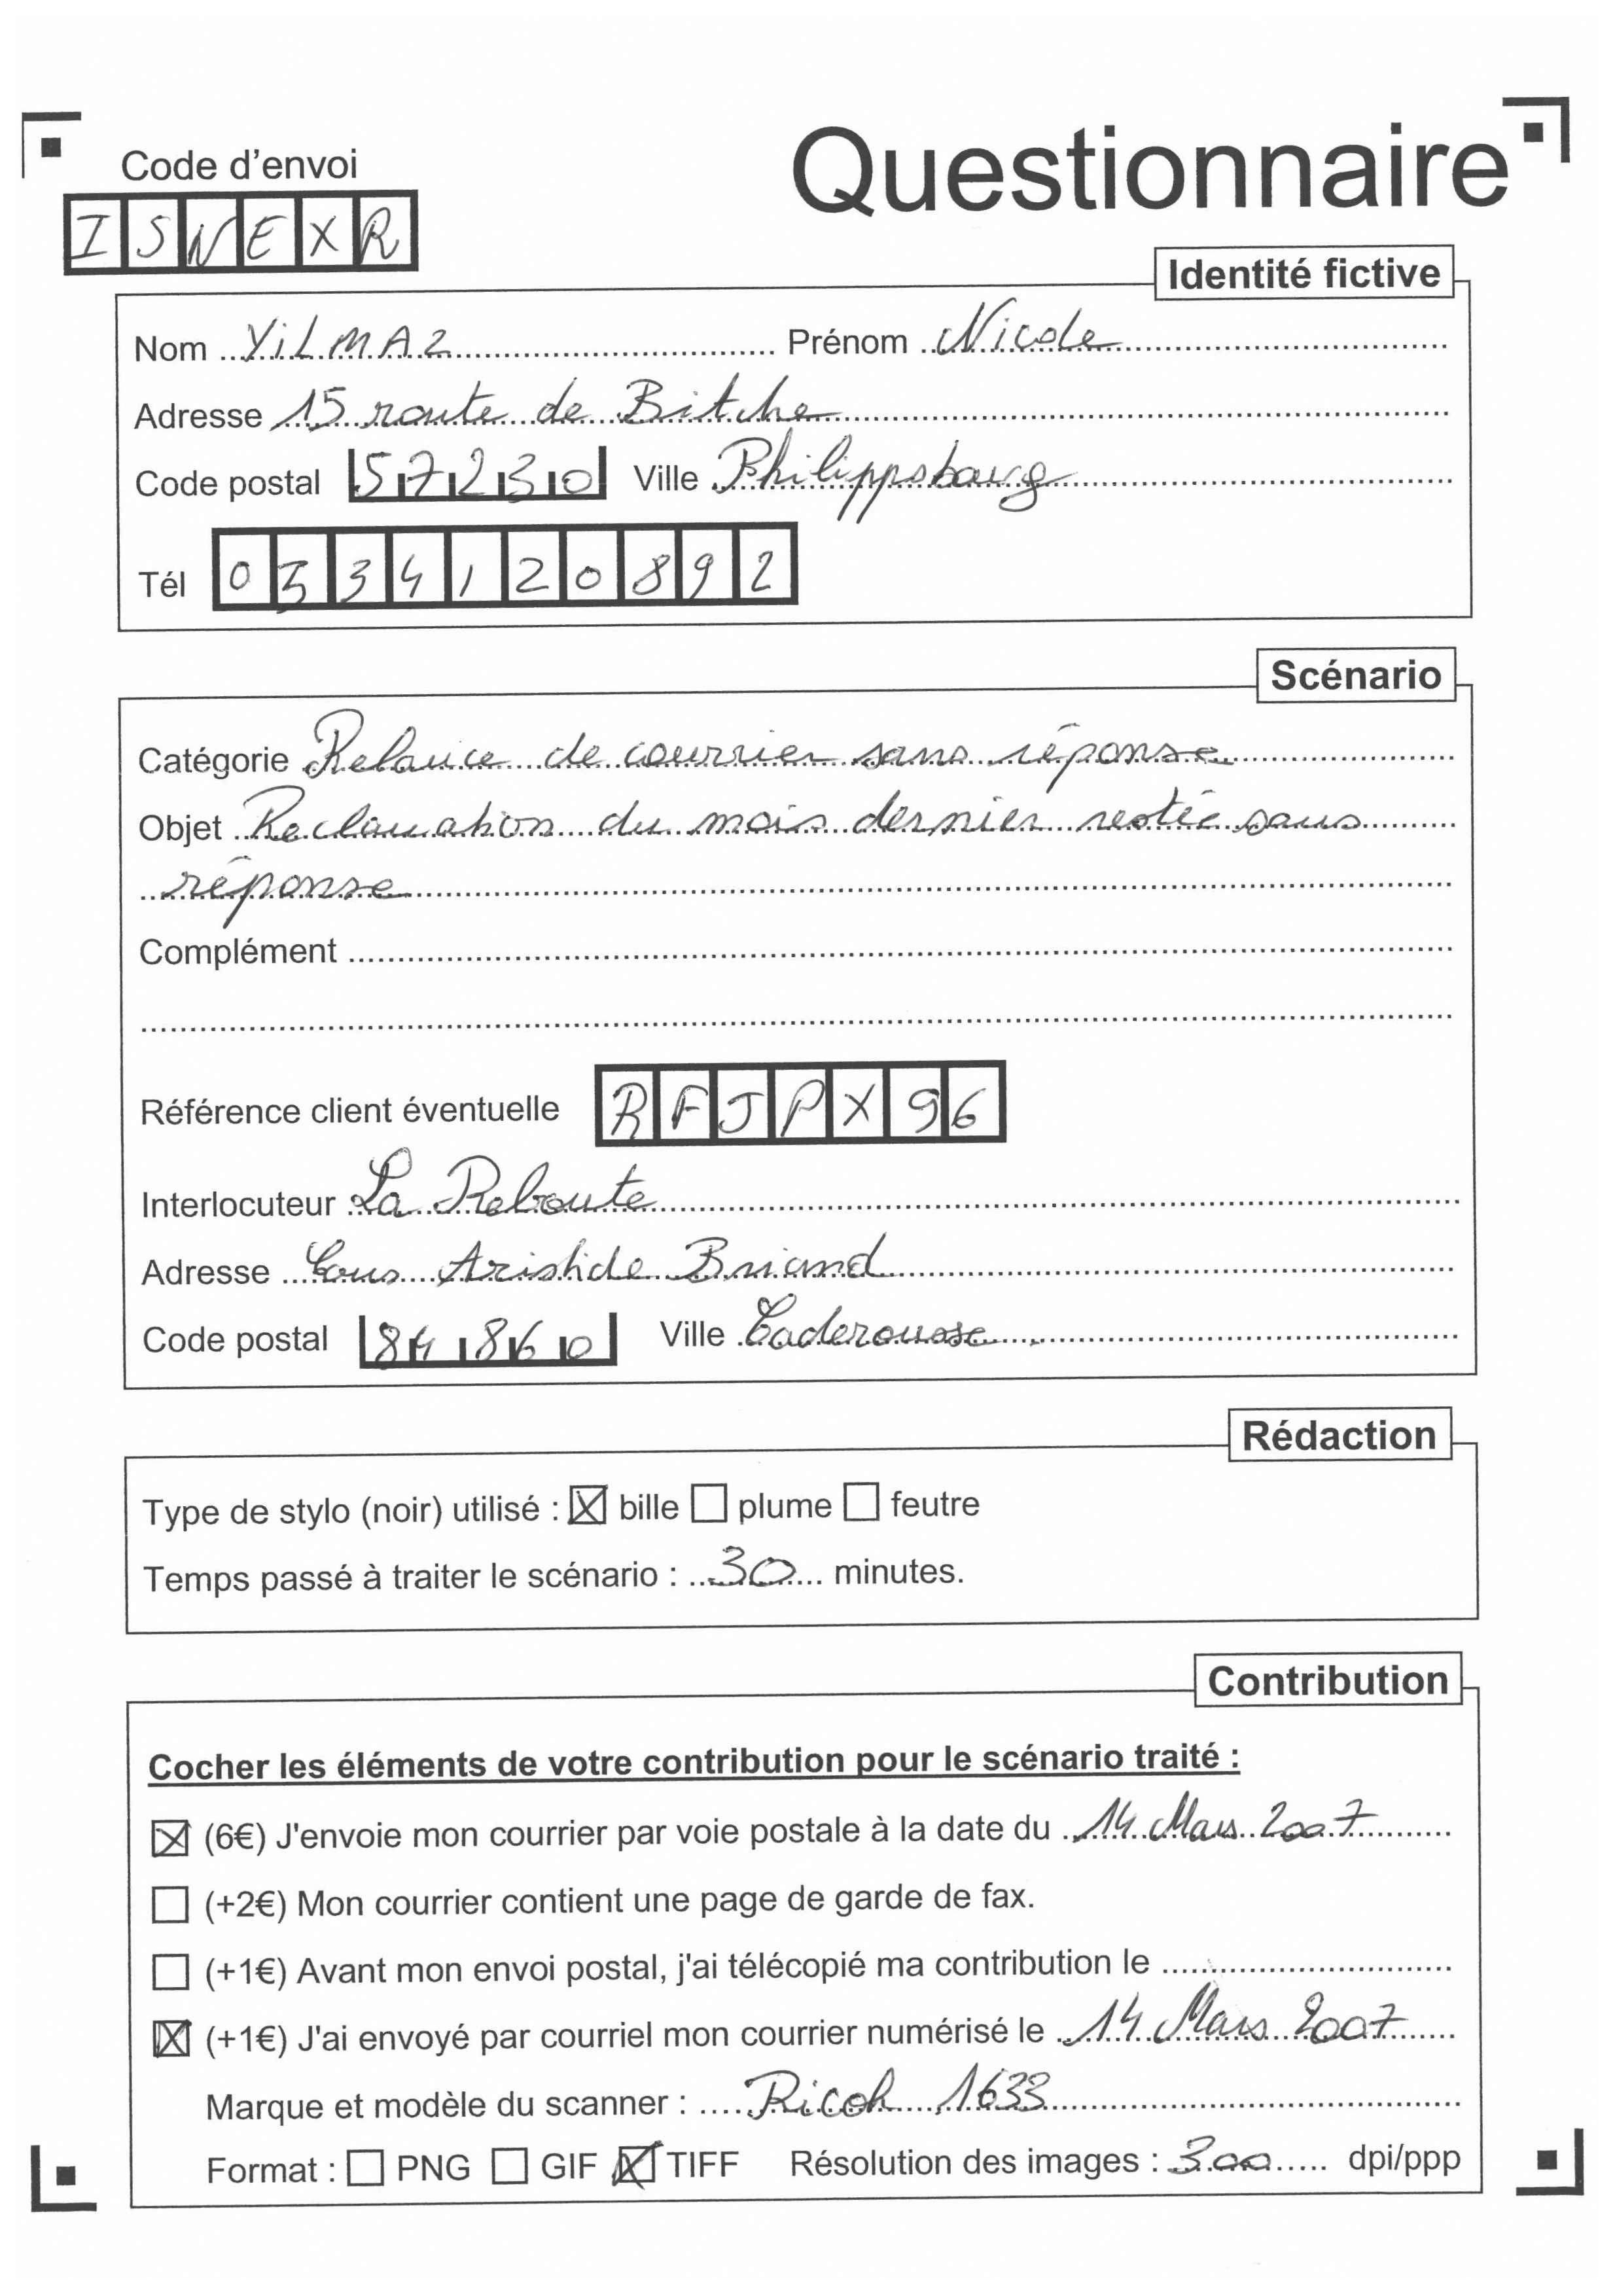 Questionnaire
Code d'envoi
ISNEXR
Identité fictive
Nom YiLMAZ Prénom Nicole
Adresse 15 route de Bitche
Code postal 57230 Ville Philippsbourg
Tél 0334120892
Scénario
Catégorie Relance de courrier sans réponse
Objet Reclamation du mois dernier restée sans
réponse
Complément
Référence client éventuelle RFJPX96
Interlocuteur La Reboute
Adresse Cours Aristide Briand
Code postal 84860 Ville Caderousse
Rédaction
Type de stylo (noir) utilisé : ☒ bille ☐ plume ☐ feutre
Temps passé à traiter le scénario : 30 minutes.
Contribution
Cocher les éléments de votre contribution pour le scénario traité :
☒ (6€) J'envoie mon courrier par voie postale à la date du 14 Mars 2007
☐ (+2€) Mon courrier contient une page de garde de fax.
☐ (+1€) Avant mon envoi postal, j'ai télécopié ma contribution le
☒ (+1€) J'ai envoyé par courriel mon courrier numérisé le 14 Mars 2007
Marque et modèle du scanner : Ricoh 1633
Format : ☐ PNG ☐ GIF ☒ TIFF Résolution des images : 300 dpi/ppp